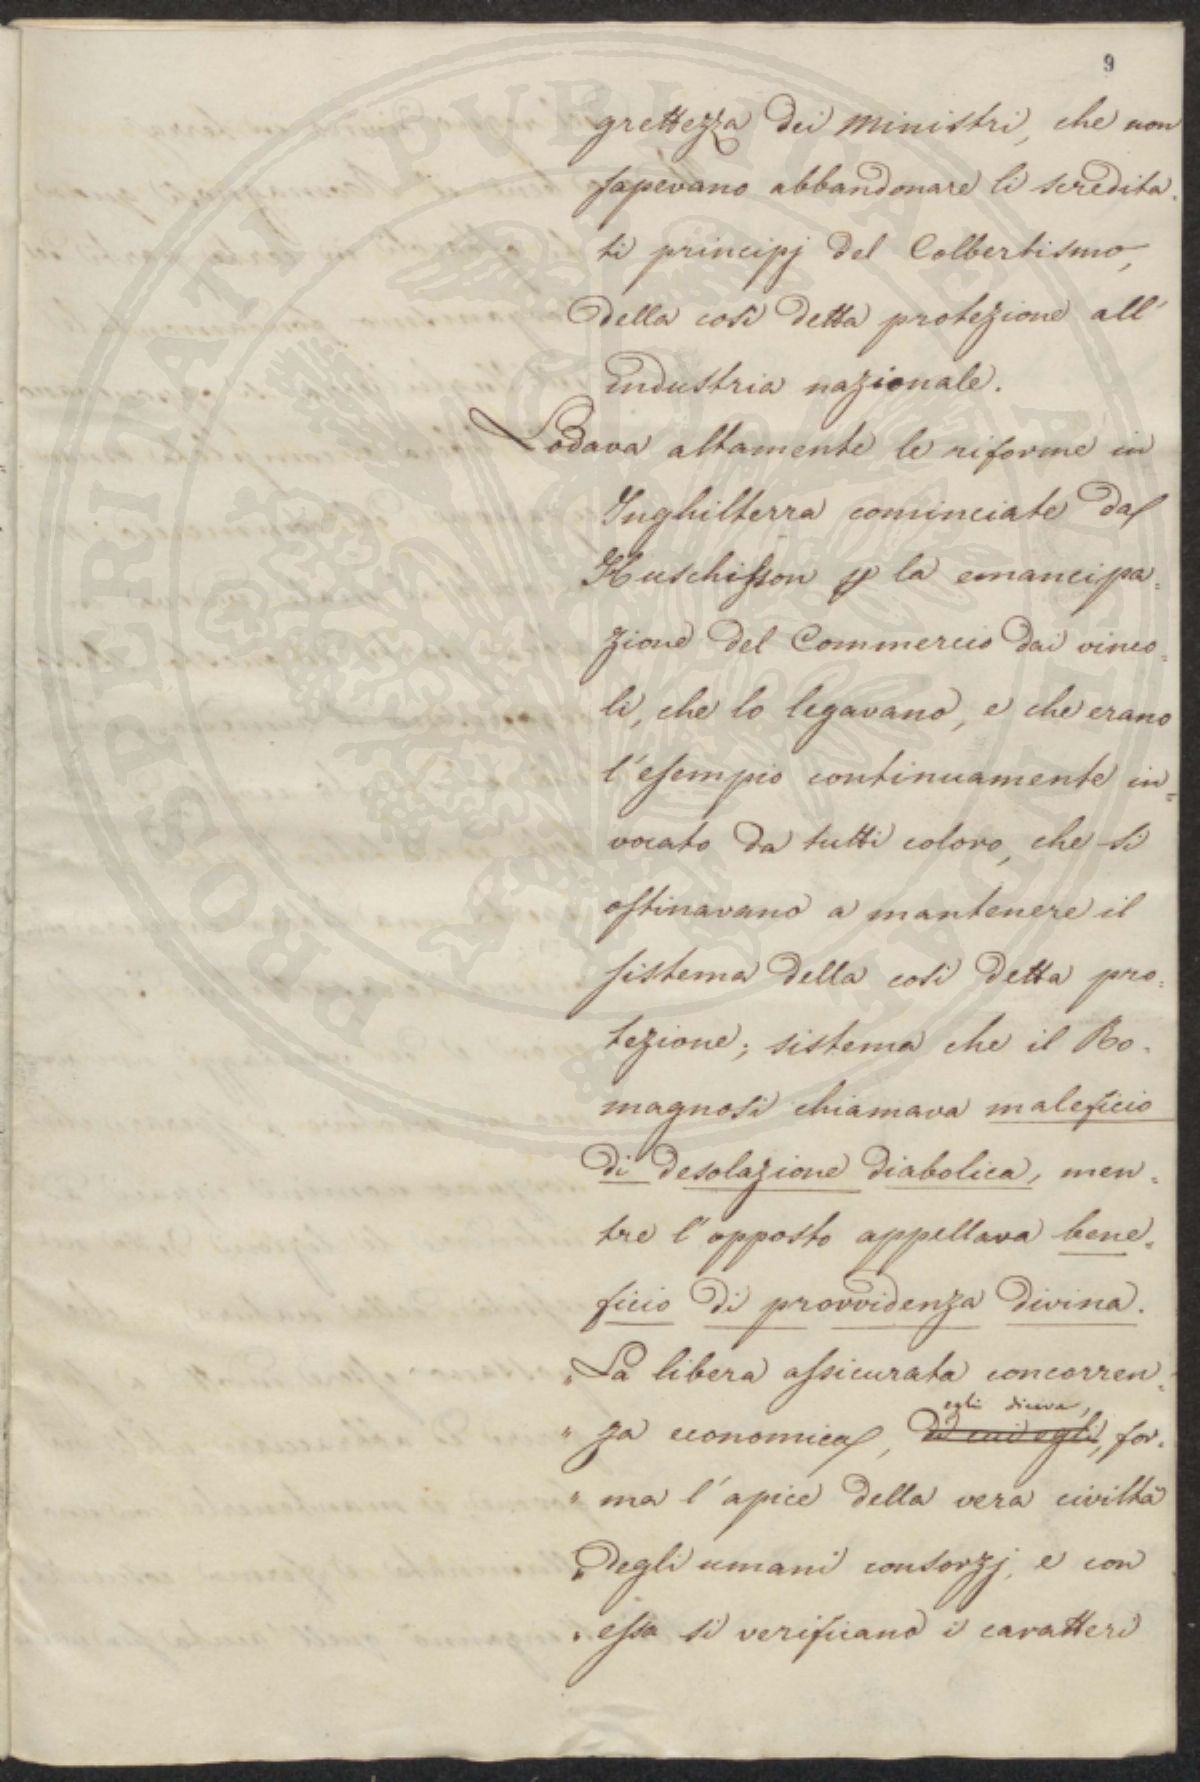 9
grettezza dei Ministri, che non
sapevano abbandonare li scredita=
ti principj del Colbertismo,
della così detta protezione all'
industria nazionale.
Lodava altamente le riforme in
Inghilterra cominciate dal
Huschisson per la emancipa=
zione del Commercio dai vinco=
li, che lo legavano, e che erano
l'esempio continuamente in=
vocato da tutti coloro, che si
ostinavano a mantenere il
sistema della così detta pro=
tezione; sistema che il Ro=
magnosi chiamava maleficio
di desolazione diabolica, men=
tre l'opposto appellava bene=
ficio di provvidenza divina.
" La libera assicurata concorren=
egli diceva,
" za economica, di cui egli, for=
" ma l'apice della vera civiltà
" degli umani consorzj, e con
" essa si verificano i caratteri
PROSPERITATI PUBLICAE AUGENDAE